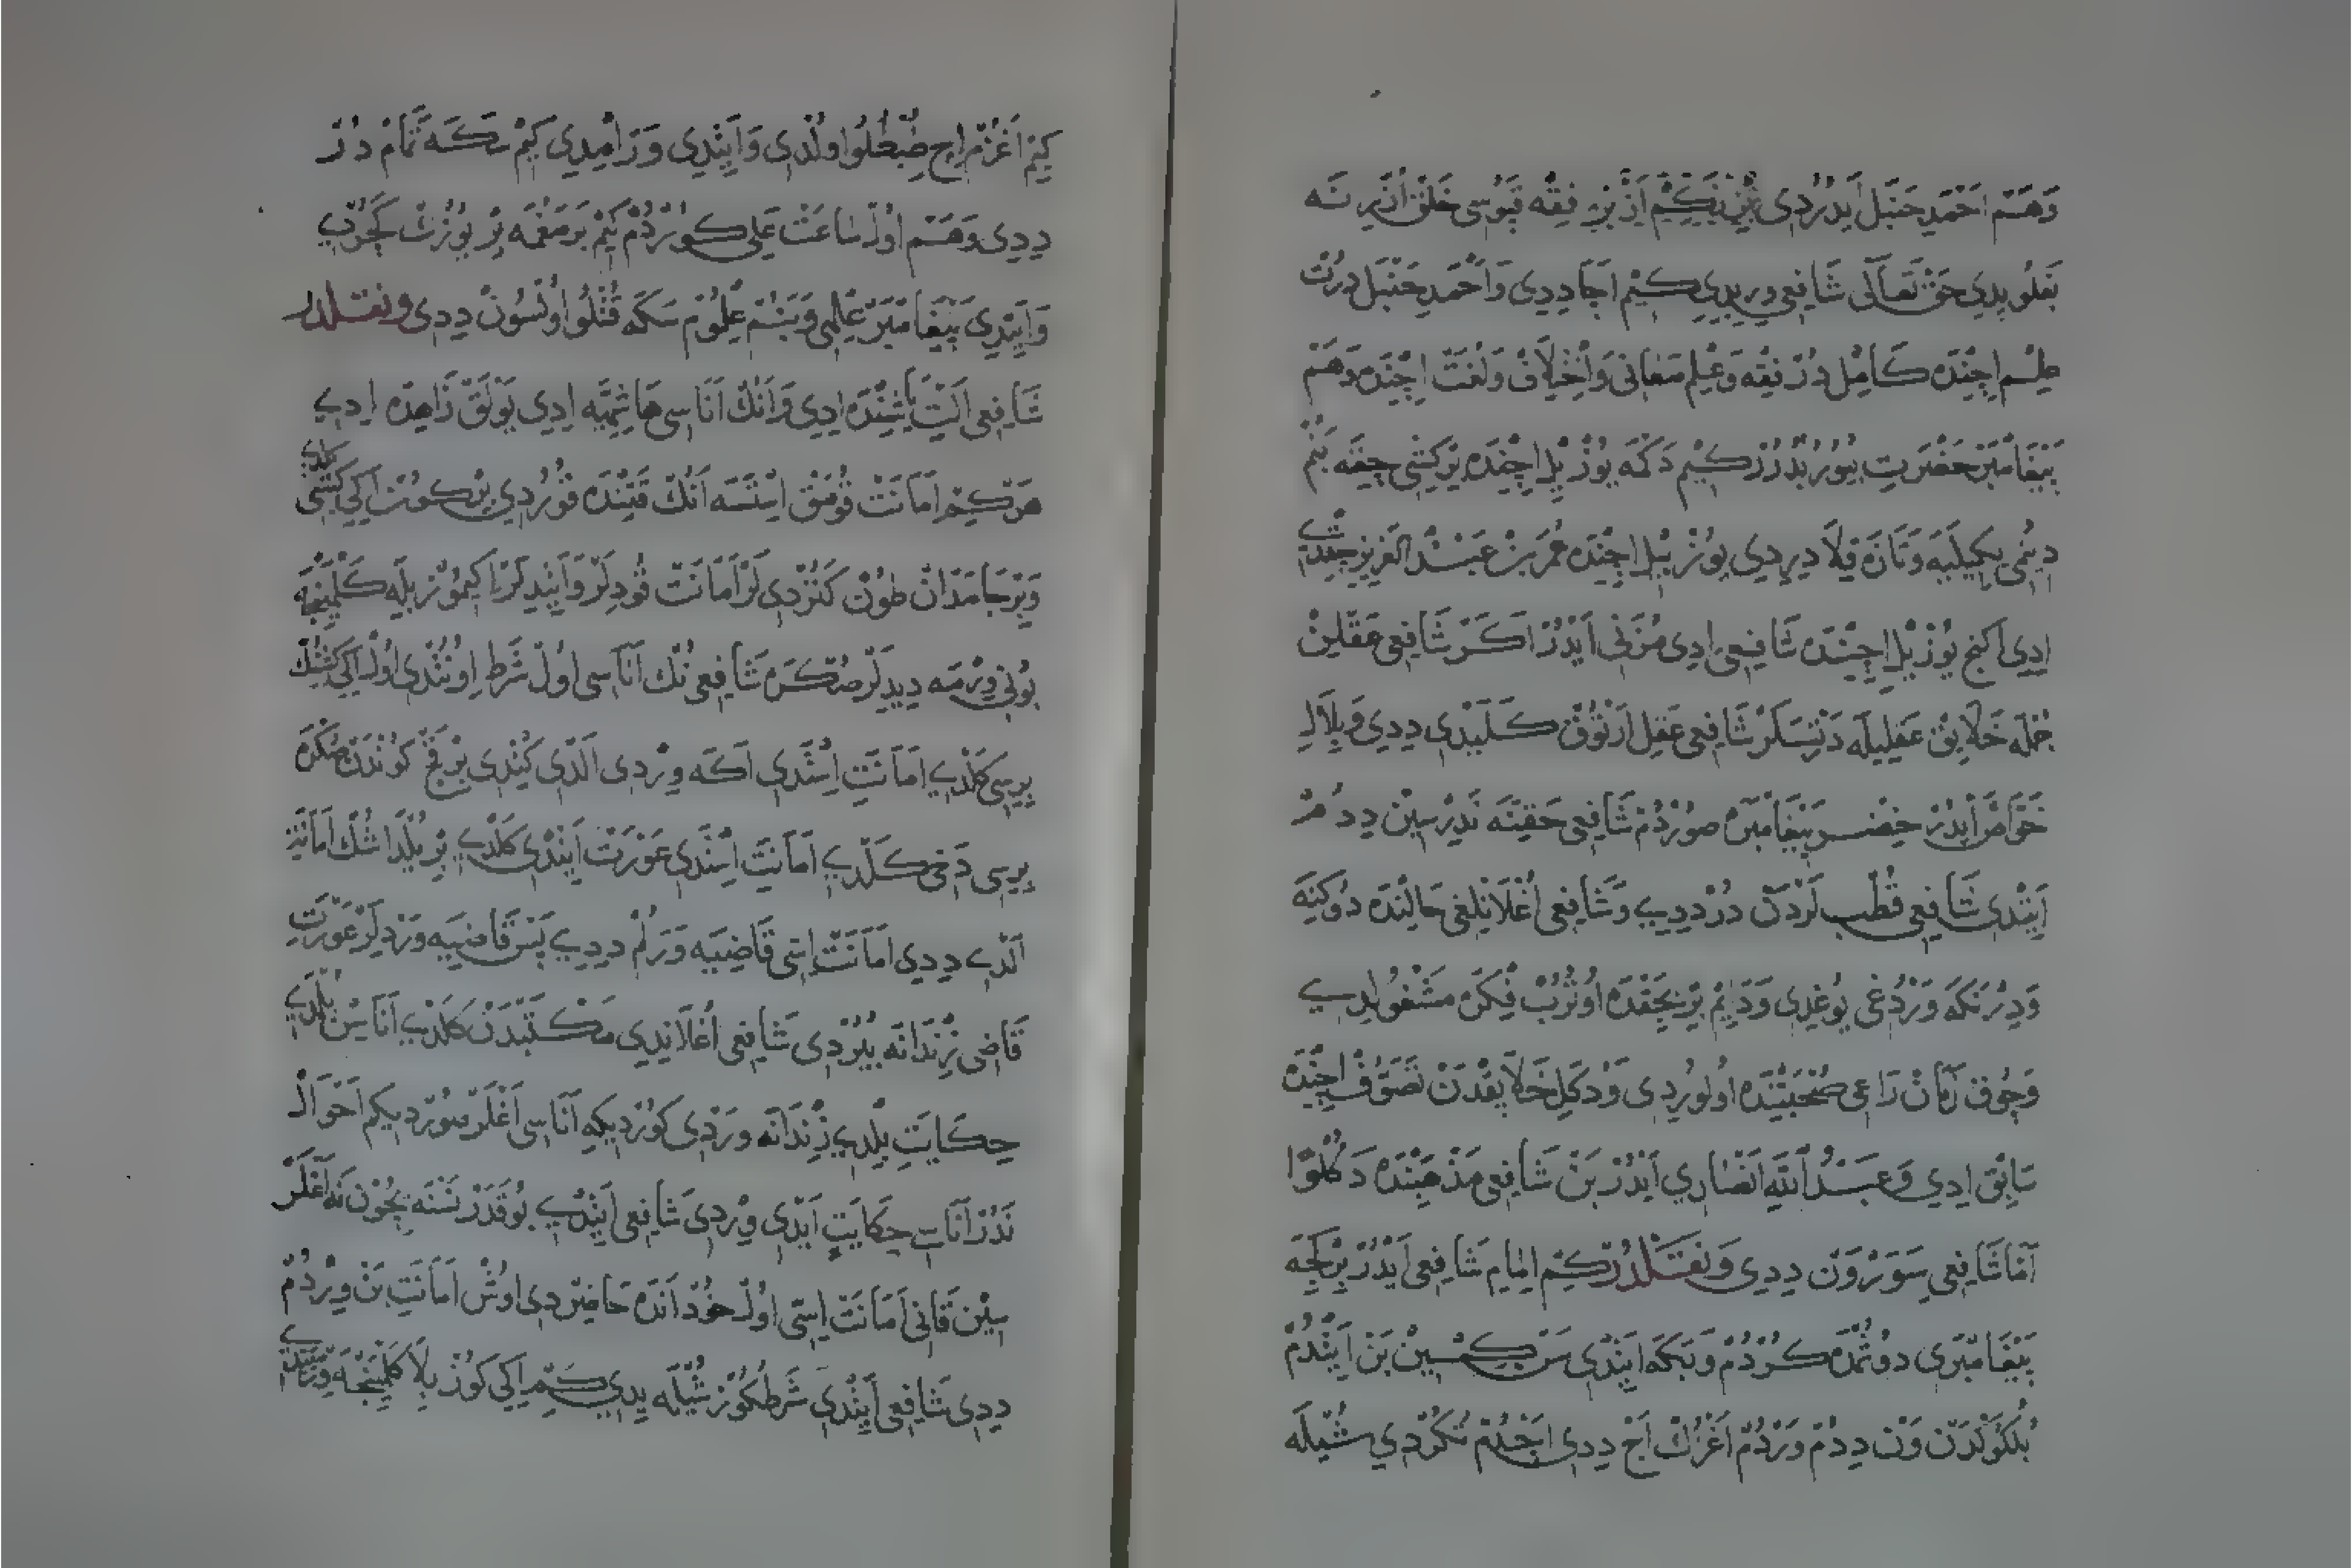 وَهَمْ اَحْمَدِ حَنْبَل اَيْدُرْدِي اَنْدَنْ فِقْه قَپُوسِی خَلْق اُزَرِنَه
بَغْلُويِدِي حَقْ تَعَالَی شَافِعِي وِرِيبِدِي كِيْم اَچَا دِدِي وَاَحْمَدِ حَنْبَل دُرْتْ
عِلِم اِچِنْدَه كَامِل دُرْ فِقْه وَعِلْمِ مَعَانی وَاخْتِلَافْ وَلُغَتْ اِچِنْدَه وَهَمْ
پَيْغَامْبَرْ حَضْرَتِ بُيُورُبْدُرُرْ كِيْم دَكْمَه يُوزْ يِلْ اِچِنْدَه بِرْ كِشِی چِقَه بَنُمْ
دِينُمِی بِكِيلَيَه وَتَازَه قِلَا دِيرِدِي يُوزْ يِلْ اِچِنْدَه عُمَر بِنْ عَبْدُ الْعَزِيزْ
اِدِي اِكِنْجِ يُوزْ يِلْ اِچِنْدَه شَافِعِي اِدِي مُزَنِی اَيْدُرْ اَكَرْ شَافِعِي عَقْلِينْ
جُمْلَه خَلَايِقْ عَقْلِيلَه دَرْتَسَلَرْ شَافِعِي عَقْلِ اَرْتُوقْ كَلَيْدِي دِدِي وَبِلَالِ
خَوَّاصْ اَيْدُرْ خِضِر پَيْغَامْبَرَه صُورْدُمْ شَافِعِي حَقِنَه نَه دِرْسِينْ دِدُمْ
اَيِتْدِي شَافِعِي قُطْبْ لَرْدَنْ دُرْ دِدِي وَشَافِعِي اُغْلَانْلِغِی حَالِنْدَه دُوكَنَه
وَدِرْنَكَه وَرْدُغِی يُوغِدِي وَدَايِمْ بِرْ بُجَقْدَه اُوتُرُبْ فِكْرَه مَشْغُولِدِي
وَچُوقْ زَمَانْ رَاعِي صُحْبَتِنْدَه اُولُورِدِي وَدَكِلْ خَلَايِقْدَنْ تَصَوُّفْ اِچِنْدَه
سَابِقْ اِدِي وَعَبْدُ اللّٰهِ اَنْصَارِي اَيْدُرْ بَنْ شَافِعِي مَذْهَبِنْدَه دَكُلْوَا
اَمَّا شَافِعِي سَوَرْوَنْ دِدِي وَنَقْلْدُرْ كِيْم اِمَام شَافِعِي اَيْدُرْ بِرْ كِجَه
پَيْغَامْبَرِي دُوشُمْدَه كُرْدُمْ وَبَكَه اَيِتْدِي سَنْ كِمْسِينْ بَنْ اَيِتْدُمْ
بُلُكُوكْدَنْ وَنْ دِدُمْ وَرْدُمْ اَغْزُكْ اَچْ دِدِي اَچْدُمْ تُكُرْدِي شُيْلَه
كِيْم اَغْزُمْ اِچِ طُبْطُلُو اولْدِي وَاَيِتْدِي وَرْ اِمْدِي كِيْم سَكَه تَمَامْ دُرْ
دِدِي وَهَمْ اُولْ سَاعَتْ عَلِي كُورْدُمْ كِيْم بَرْمَغُمَه بِرْ يُوزُكْ كَچُرْدِي
وَاَيِتْدِي پَيْغَامْبَرْ عِلْمِی وَبَنُمْ عِلْمُومْ سَكَه قُتْلُو اُولْسُونْ دِدِي وَنَقْلدُر
شَافِعِي اَلْتِ يَاشِنْدَه اِدِي وَاَنُكْ اَنَاسِی هَاشِمِيَّه اِدِي بَوْلَقْ زَاهِدَه اِدِي
هَرْ كِيْم اَمَانَتْ قُومَقْ اِسْتَسَه اَنُكْ قَتِنْدَه قُورُدِي بِرْ كُونْ اِكِي كِشِی كَلْدِي
وَبِرْ جَامَدَانْ طُونْ كَتُرْدِي لَرْ اَمَانَتْ قُودِلَرْ وَاَيِتْدِلَرْ اِكِيمُوزْ بِلَه كَلْمَيِنْجَه
بُونِی وِرْمَه دِيدِلَرْ صُكْرَه شَافِعِي نُكْ اَنَاسِی اُولْ شَرْطِ اُونُتْدِي اُولْ اِكِي كِشِنُكْ
بِرِسِی كَلْدِي اَمَانَتِ اِسْتَدِي اَكَه وِرْدِي اَلْدِي كِتْدِي بِرْ قَچْ كُونْدَنْ صُكْرَه
بِرِسِی دَخِی كَلْدِي اَمَانَتِ اِسْتَدِي عَوْرَتْ اَيِتْدِي كَلْدِي بِرْ يُلْدَاشُكْ اَمَانَتِ
اَلْدِي دِدِي اَمَانَتْ اِسِّی قَاضِيَه وَرَلُمْ دِدِي پَسْ قَاضِيَه وَرْدِلَرْ عَوْرَتِ
قَاضِی زِنْدَانَه بُيُرْدِي شَافِعِي اُغْلَانِدِي مَكْتَبْدَنْ كَلْدِي اَنَاسِنْ بُلْمَدِي
حِكَايَتِ بِلْدِي زِنْدَانَه وَرْدِي كُورْدِيكِه اَنَاسِی اَغْلَرْ صُورْدِيكِم اَحْوَالْ
نَه دُرْ اَنَاسِی حِكَايَتِ اَيْدِي وِرْدِي شَافِعِي اَيِتْدِي بُو قَدَرْ نَسْنَه يچُونْ نَه اَغْلَرْ
سِينْ قَانِی اَمَانَتْ اِسِّی اُولْ خُودْ اَنْدَه حَاضِرْدِي اُوشْ اَمَانَتِ بَنْ وِرْدُمْ
دِدِي شَافِعِي اَيِتْدِي شَرْطُكُوزْ شُيْلَه يِدِي كِيْم اِكِي كُوزْ بِلَا كَلْمَيِنْجَه وِرْمَيَه